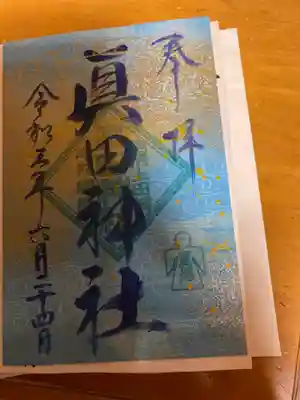 奉拝
眞田神社
令和五年六月二十四日